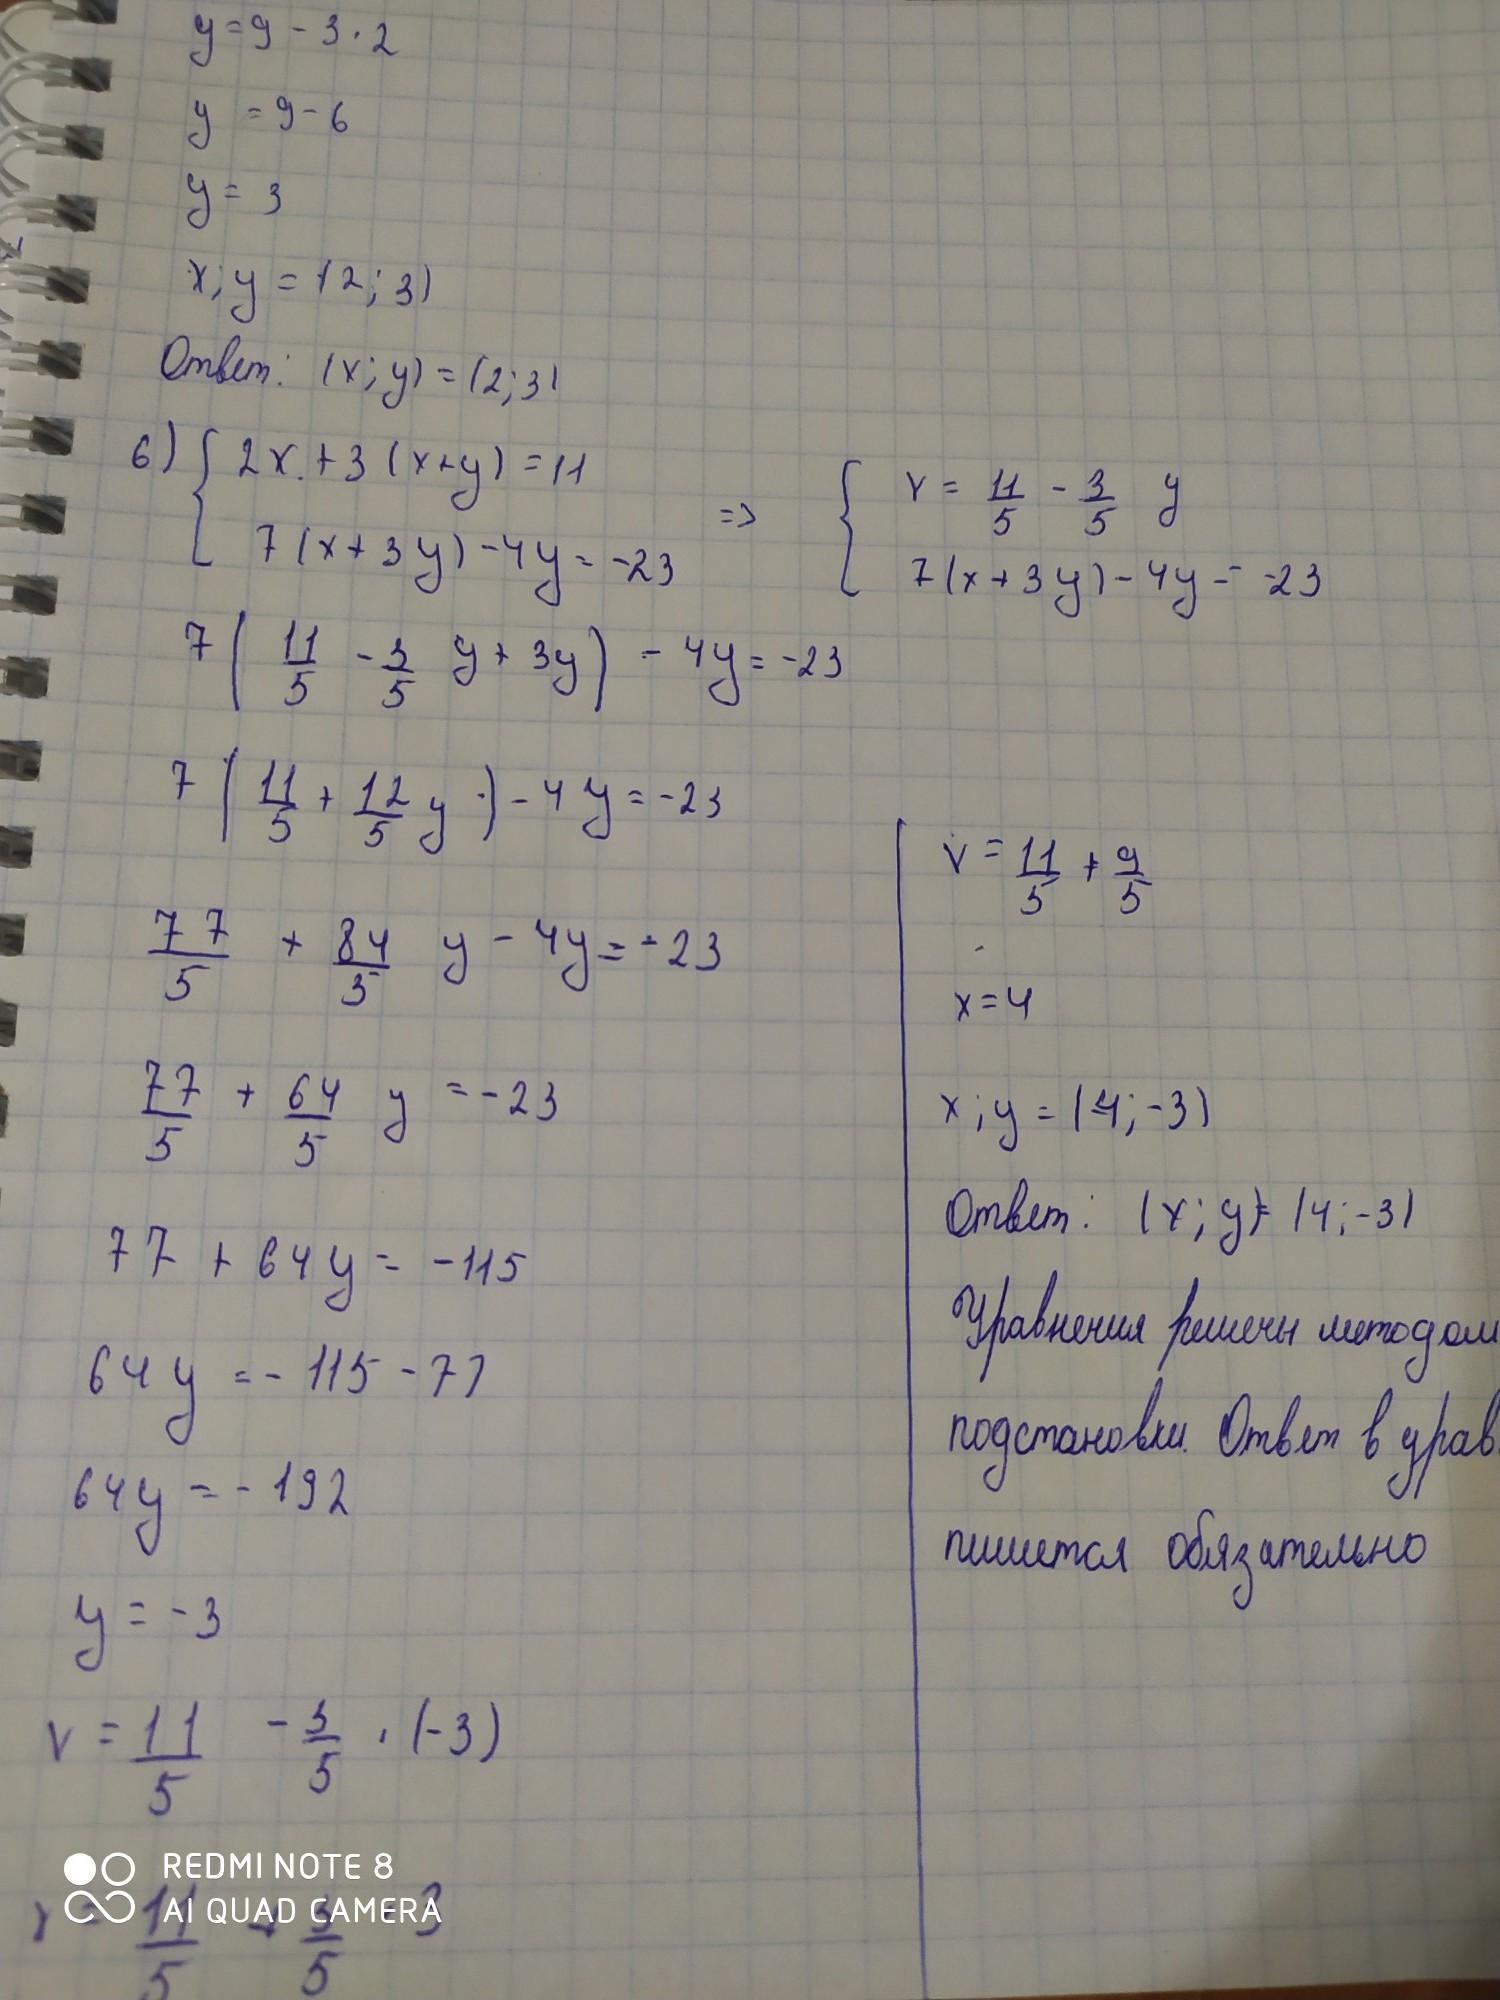 y = 9 - 3 · 2
y = 9 - 6
y = 3
x; y = (2; 3)
Ответ: (x; y) = (2; 3)
6) { 2x + 3(x+y) = 11
7(x + 3y) - 4y = -23
=> { x = 11/5 - 3/5 y
7(x + 3y) - 4y = -23
7(11/5 - 3/5 y + 3y) - 4y = -23
7(11/5 + 12/5 y) - 4y = -23
77/5 + 84/5 y - 4y = -23
77/5 + 64/5 y = -23
77 + 64y = -115
64y = -115 - 77
64y = -192
y = -3
x = 11/5 - 3/5 · (-3)
x = 11/5 + 3/5 · 3
x = 11/5 + 9/5
x = 4
x; y = (4; -3)
Ответ: (x; y) = (4; -3)
Уравнения решены методом
подстановки. Ответ в урав.
пишется обязательно
REDMI NOTE 8
AI QUAD CAMERA